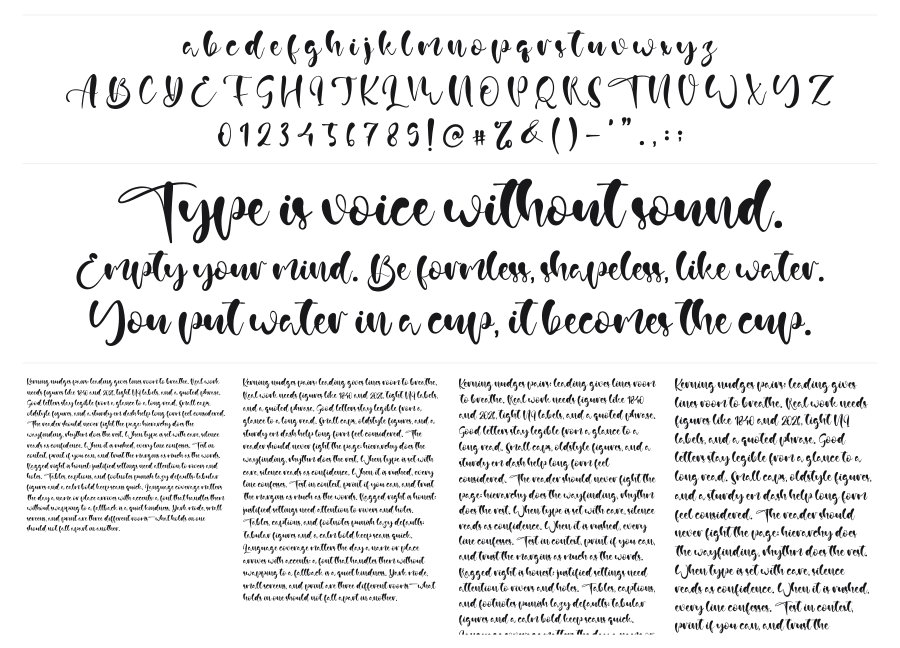 a b c d e f g h i j k l m n o p q r s t u v w x y z
A B C D E F G H I J K L M N O P Q R S T U V W X Y Z
0 1 2 3 4 5 6 7 8 9 ! @ # % & ( ) - ' " . , : ;
Type is voice without sound.
Empty your mind. Be formless, shapeless, like water.
You put water in a cup, it becomes the cup.
Kerning nudges pairs; leading gives lines room to breathe. Real work
needs figures like 1840 and 2026, tight UI labels, and a quoted phrase.
Good letters stay legible from a glance to a long read. Small caps,
oldstyle figures, and a sturdy en dash help long form feel considered.
The reader should never fight the page: hierarchy does the
wayfinding, rhythm does the rest. When type is set with care, silence
reads as confidence. When it is rushed, every line confesses. Test in
context, print if you can, and trust the margins as much as the words.
Ragged right is honest; justified settings need attention to rivers and
holes. Tables, captions, and footnotes punish lazy defaults: tabular
figures and a calm bold keep scans quick. Language coverage matters
the day a name or place arrives with accents; a font that handles them
without swapping to a fallback is a quiet kindness. Dark mode, small
screens, and print are three different rooms—what holds in one
should not fall apart in another.
Kerning nudges pairs; leading gives lines room to breathe.
Real work needs figures like 1840 and 2026, tight UI labels,
and a quoted phrase. Good letters stay legible from a
glance to a long read. Small caps, oldstyle figures, and a
sturdy en dash help long form feel considered. The
reader should never fight the page: hierarchy does the
wayfinding, rhythm does the rest. When type is set with
care, silence reads as confidence. When it is rushed, every
line confesses. Test in context, print if you can, and trust
the margins as much as the words. Ragged right is honest;
justified settings need attention to rivers and holes.
Tables, captions, and footnotes punish lazy defaults:
tabular figures and a calm bold keep scans quick.
Language coverage matters the day a name or place
arrives with accents; a font that handles them without
swapping to a fallback is a quiet kindness. Dark mode,
small screens, and print are three different rooms—what
holds in one should not fall apart in another.
Kerning nudges pairs; leading gives lines room
to breathe. Real work needs figures like 1840
and 2026, tight UI labels, and a quoted phrase.
Good letters stay legible from a glance to a
long read. Small caps, oldstyle figures, and a
sturdy en dash help long form feel
considered. The reader should never fight the
page: hierarchy does the wayfinding, rhythm
does the rest. When type is set with care, silence
reads as confidence. When it is rushed, every
line confesses. Test in context, print if you can,
and trust the margins as much as the words.
Ragged right is honest; justified settings need
attention to rivers and holes. Tables, captions,
and footnotes punish lazy defaults: tabular
figures and a calm bold keep scans quick.
Language coverage matters the day a name or
Kerning nudges pairs; leading gives
lines room to breathe. Real work needs
figures like 1840 and 2026, tight UI
labels, and a quoted phrase. Good
letters stay legible from a glance to a
long read. Small caps, oldstyle figures,
and a sturdy en dash help long form
feel considered. The reader should
never fight the page: hierarchy does
the wayfinding, rhythm does the rest.
When type is set with care, silence
reads as confidence. When it is rushed,
every line confesses. Test in context,
print if you can, and trust the